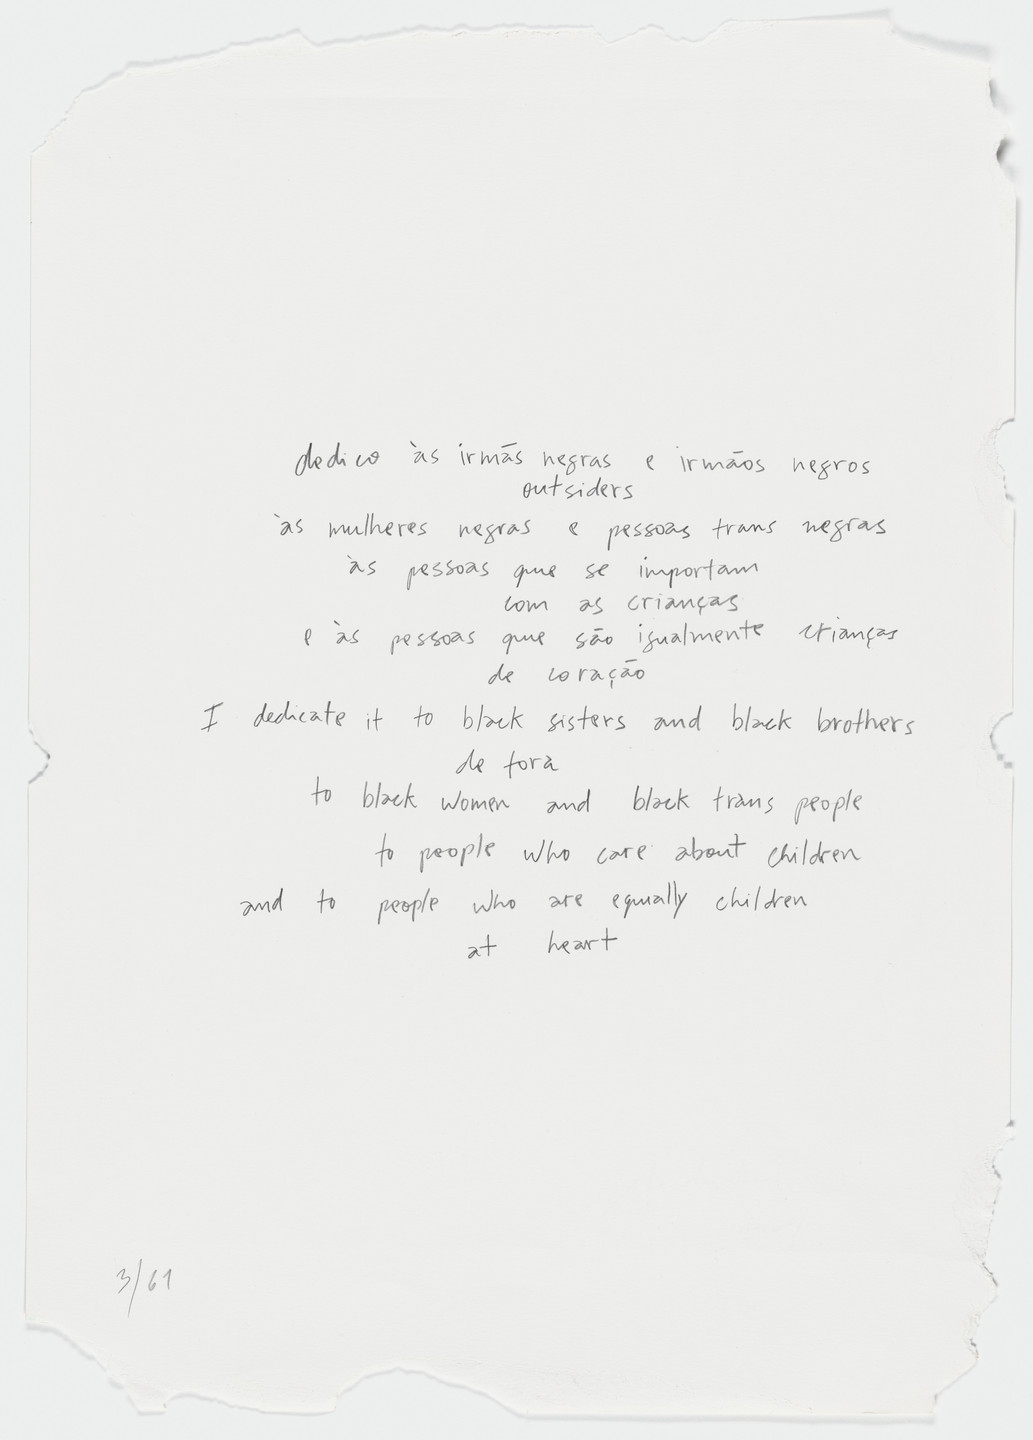 dedico às irmãs negras e irmãos negros
outsiders
às mulheres negras e pessoas trans negras
às pessoas que se importam
com as crianças
e às pessoas que são igualmente crianças
de coração
I dedicate it to black sisters and black brothers
de fora
to black women and black trans people
to people who care about children
and to people who are equally children
at heart
3/61